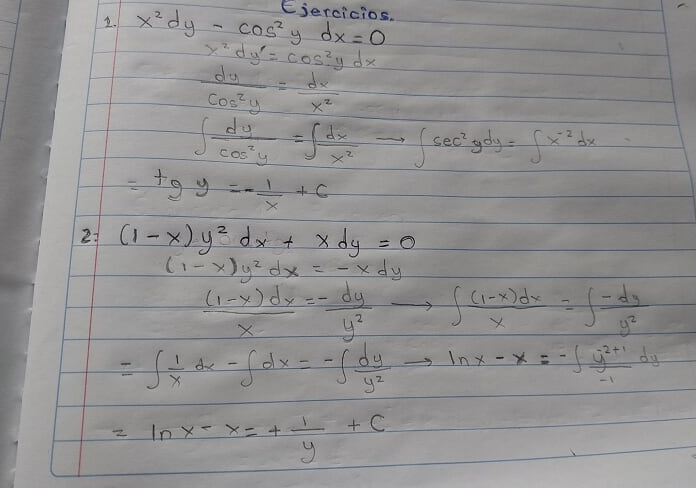 Ejercicios.
1. x² dy - cos² y dx = 0
x² dy = cos² y dx
dy/cos² y = dx/x²
∫ dy/cos² y = ∫ dx/x² → ∫ sec² y dy = ∫ x⁻² dx
= tg y = - 1/x + C
2: (1-x) y² dx + x dy = 0
(1-x) y² dx = -x dy
(1-x) dx/x = - dy/y² → ∫ (1-x) dx/x = ∫ -dy/y²
= ∫ 1/x dx - ∫ dx = - ∫ dy/y² → ln x - x = - ∫ y²⁺¹/-1 dy
= ln x - x = + 1/y + C